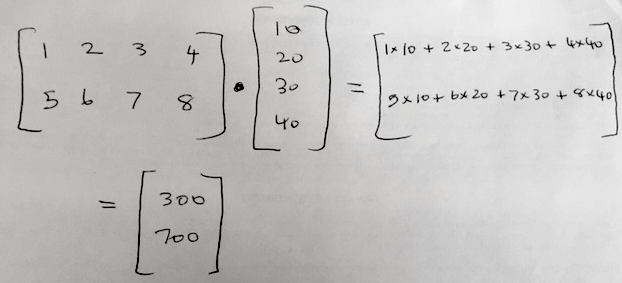 [1 2 3 4
5 6 7 8] • [10
20
30
40] = [1×10 + 2×20 + 3×30 + 4×40
5×10 + 6×20 + 7×30 + 8×40]
= [300
700]